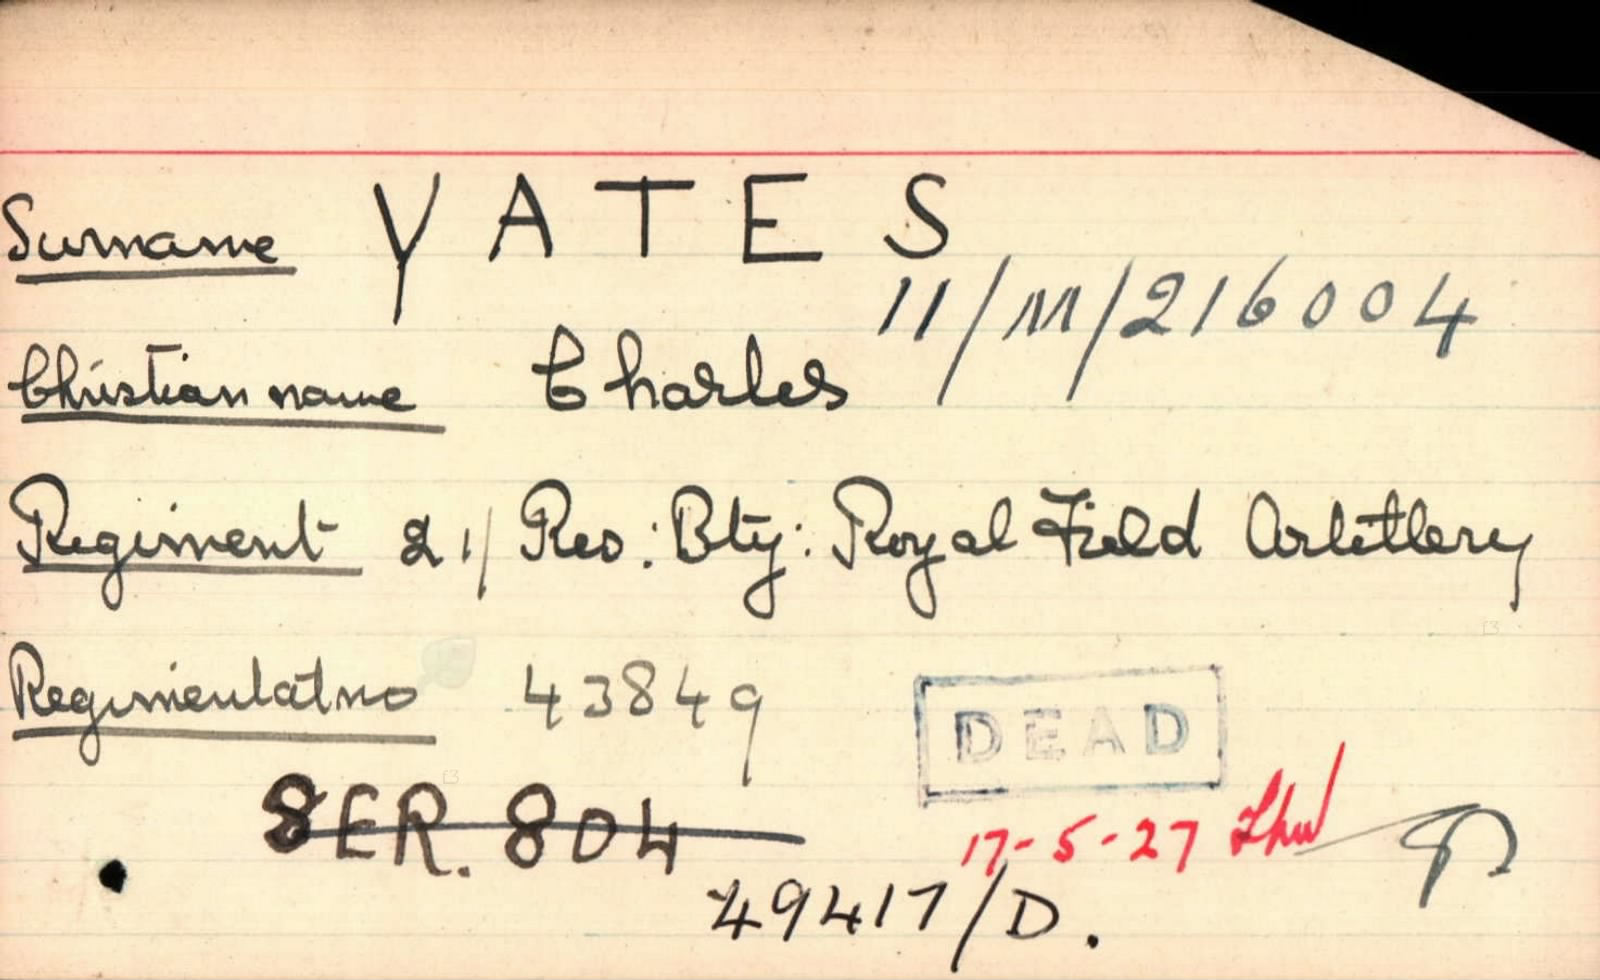 Surname YATES
11/M/216004
Christian name Charles
Regiment 21/ Res: Bty: Royal Field Artitlery
Regimental no 43849
DEAD
SER. 804
17-5-27
49417/D.